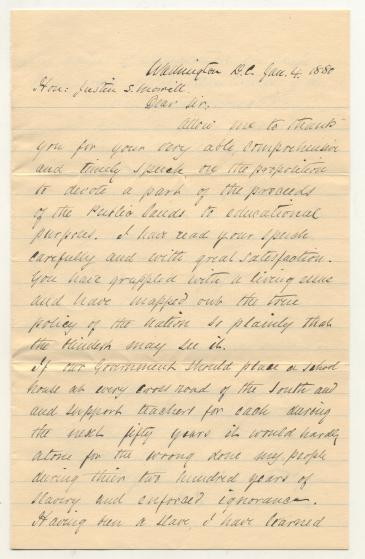 Washington D.C. Jan. 4. 1880
Hon: Justin S. Morrill.
Dear Sir.
Allow me to thank
you for your very able, comprehensive
and timely speech, on the proposition
to devote a part of the proceeds
of the Public lands to educational
purposes. I have read your speech
carefully and with great satisfaction.
You have grappled with a living issue
and have mapped out the true
policy of the nation so plainly that
the blindest may see it.
If our Government should place a school
house at every cross road of the South and
and support teachers for each during
the next fifty years it would hardly
atone for the wrong done my people
during their two hundred years of
slavery and enforced ignorance.
Having been a slave, I have learned